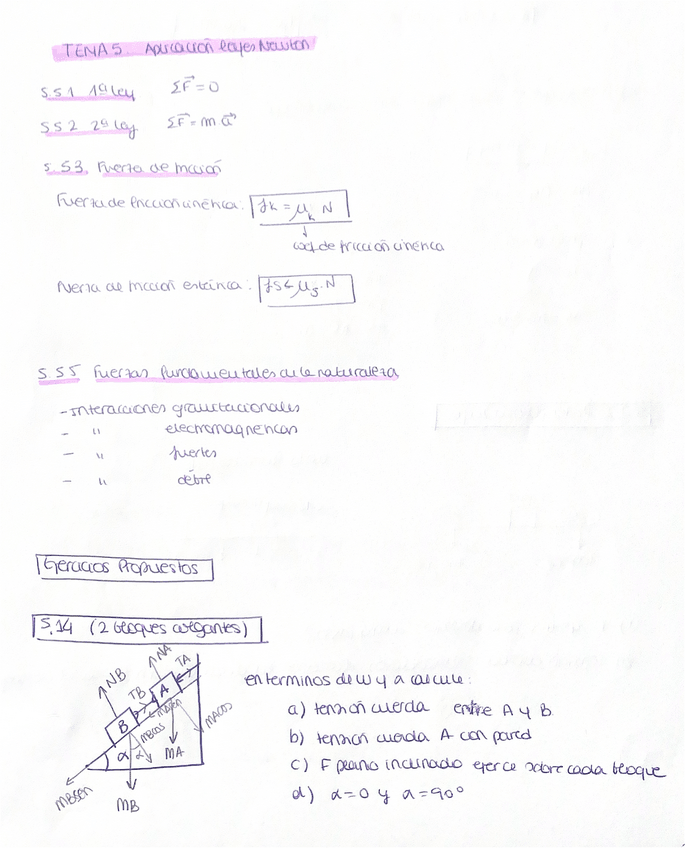 TEMA 5 Aplicación leyes Newton
5.51 1ª ley ΣF⃗ = 0
5.52 2ª ley ΣF⃗ = m.a⃗
5.53. Fuerza de fricción
Fuerza de fricción cinética: fk = μk N
coef de fricción cinética
Fuerza de fricción estática: fs ≤ μs.N
5.55 Fuerzas fundamentales de la naturaleza
- Interacciones gravitacionales
- " electromagneticas
- " fuertes
- " débile
Ejercicios Propuestos
5.14 (2 bloques colgantes)
NA
TA
NB
TB
A
B
MBsen
MBcos
MAcos
α
α
MA
MBsen
MB
en terminos de w y α calcule:
a) tensión cuerda entre A y B
b) tensión cuerda A con pared
c) F plano inclinado ejerce sobre cada bloque
d) α=0 y α=90°